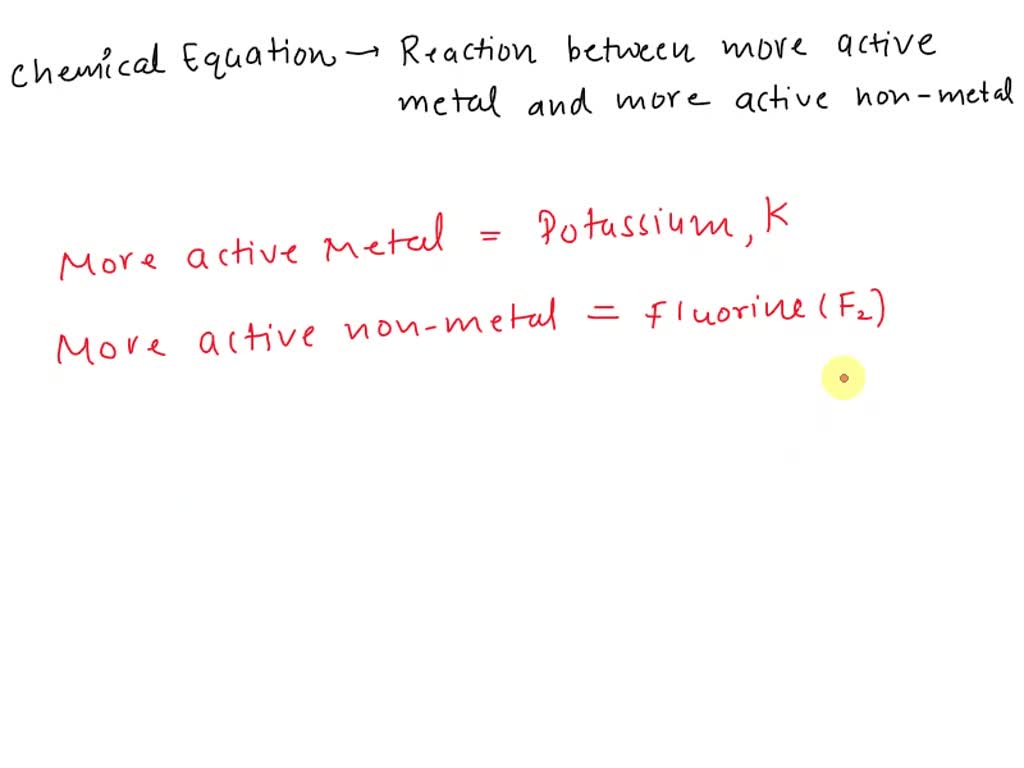 Chemical Equation → Reaction between more active
metal and more active non-metal
More active Metal = Potassium, K
More active non-metal = fluorine (F₂)